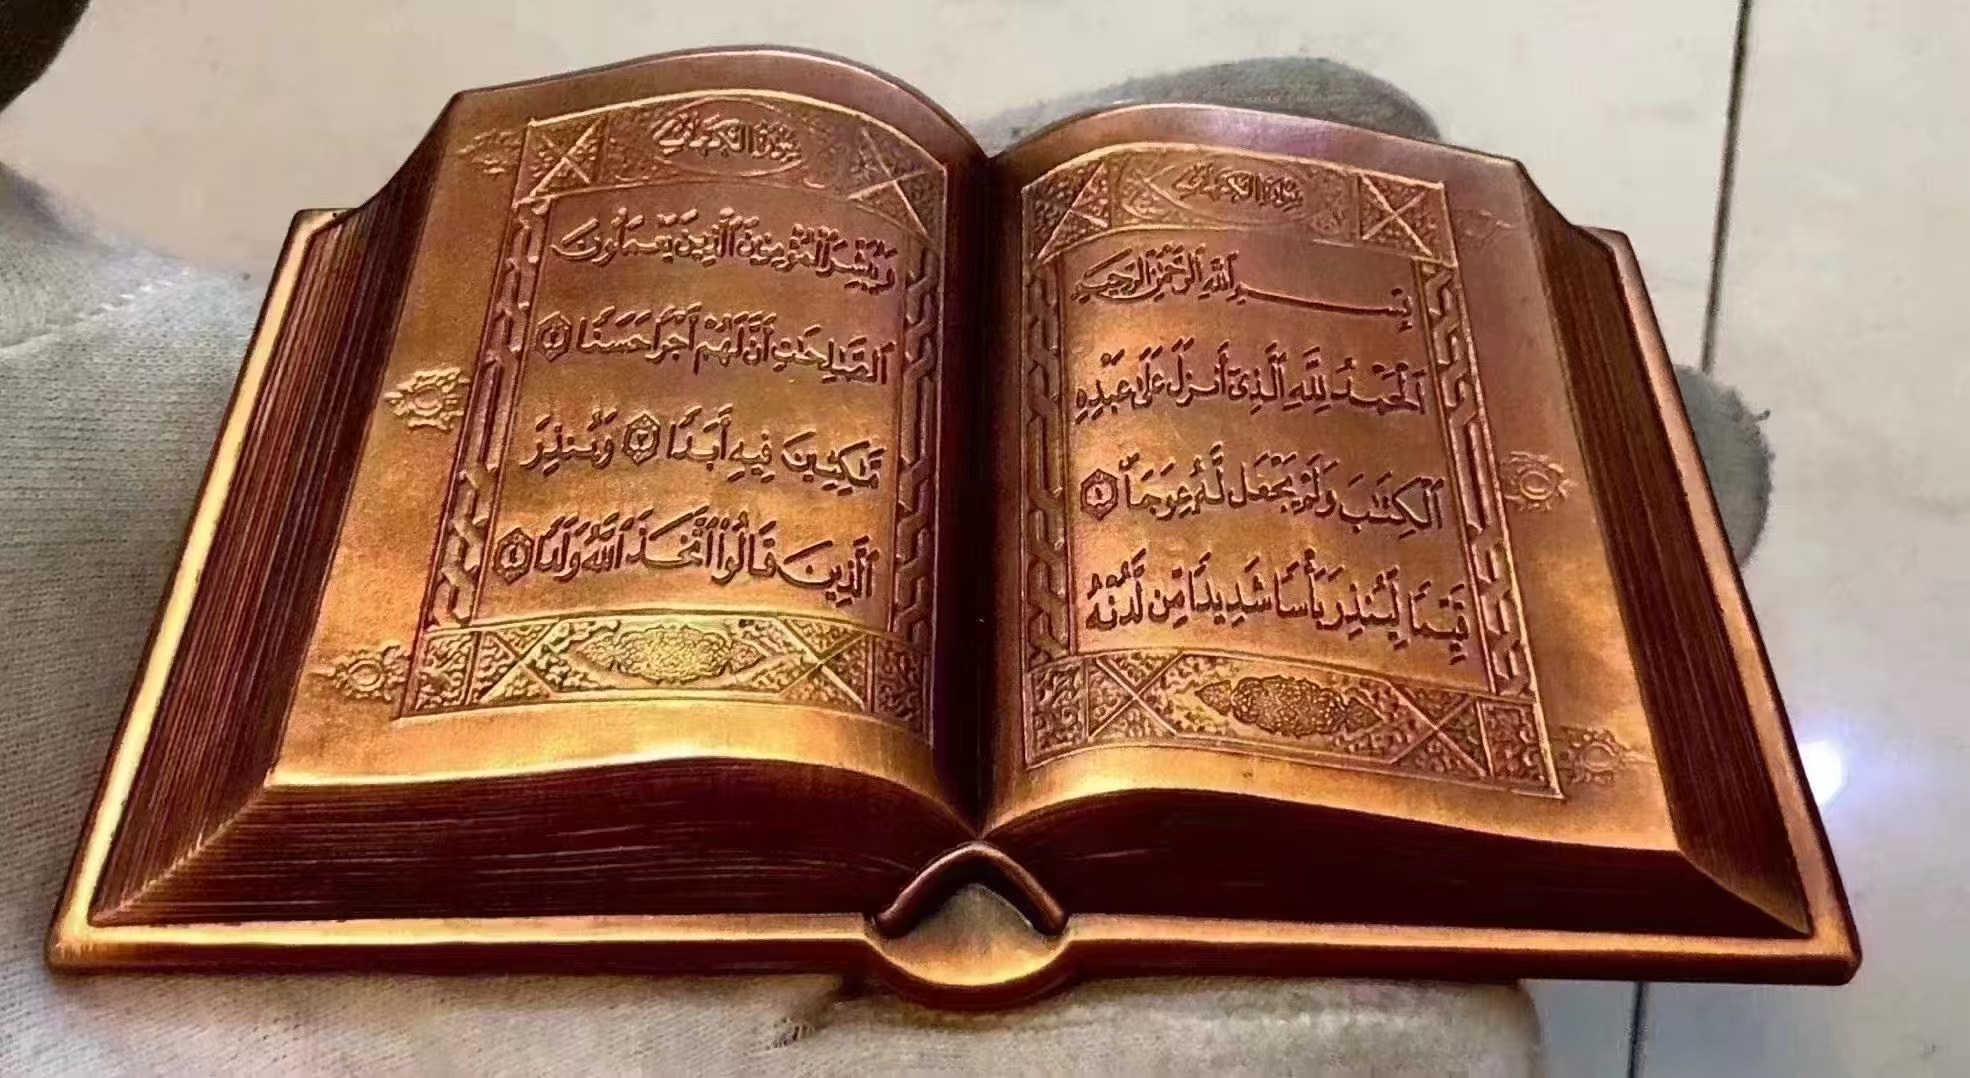 سورة الكهف
بِسْمِ اللَّهِ الرَّحْمَٰنِ الرَّحِيمِ
الْحَمْدُ لِلَّهِ الَّذِي أَنزَلَ عَلَىٰ عَبْدِهِ
الْكِتَابَ وَلَمْ يَجْعَل لَّهُ عِوَجًا ۜ ١
قَيِّمًا لِّيُنذِرَ بَأْسًا شَدِيدًا مِّن لَّدُنْهُ
سورة الكهف
وَيُبَشِّرَ الْمُؤْمِنِينَ الَّذِينَ يَعْمَلُونَ
الصَّالِحَاتِ أَنَّ لَهُمْ أَجْرًا حَسَنًا ٢
مَّاكِثِينَ فِيهِ أَبَدًا ٣ وَيُنذِرَ
الَّذِينَ قَالُوا اتَّخَذَ اللَّهُ وَلَدًا ٤